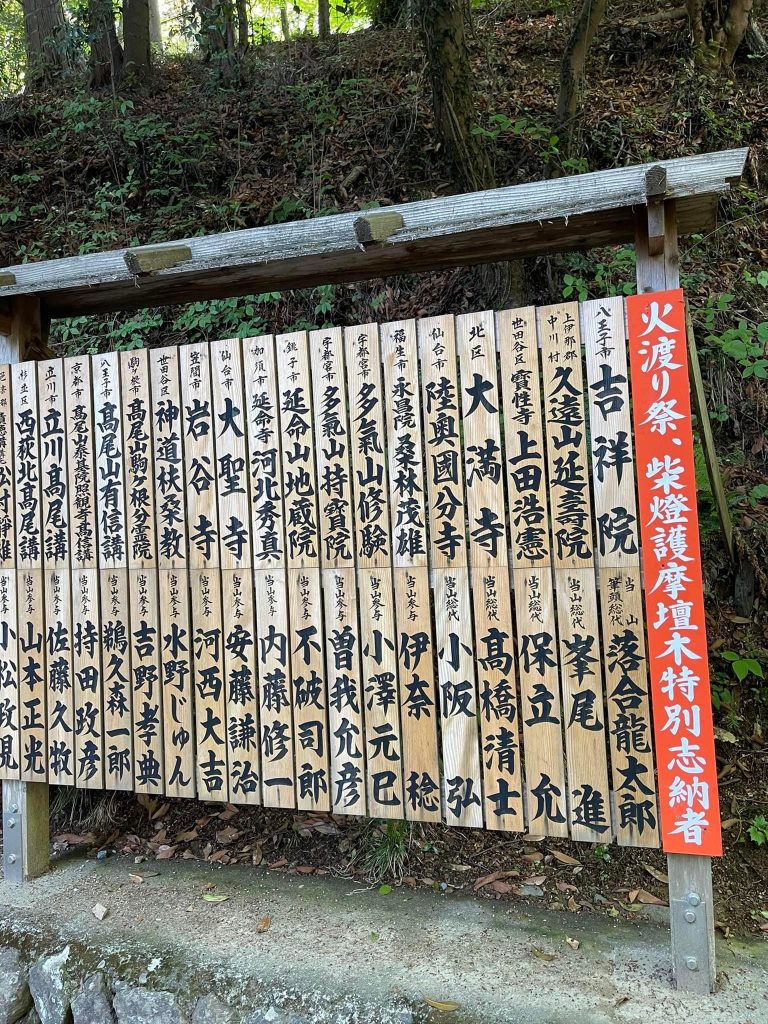 火渡り祭、柴燈護摩壇木特別志納者
八王子市 吉祥院
上伊那郡中川村 久遠山延壽院
世田谷区 寳性寺 上田浩憲
北区 大満寺
仙台市 陸奥國分寺
福生市 永昌院 桑林茂雄
宇都宮市 多氣山修験
宇都宮市 多氣山持寳院
銚子市 延命山地蔵院
加須市 延命寺 河北秀真
仙台市 大聖寺
笠間市 岩谷寺
世田谷区 神道扶桑教
駒ヶ根市 髙尾山駒ヶ根分霊院
八王子市 髙尾山有信講
京都市 髙尾山泰基院照観寺髙信講
立川市 立川髙尾講
杉並区 西荻北髙尾講
当山筆頭総代 落合龍太郎
当山総代 峯尾進
当山総代 保立允
当山総代 髙橋清士
当山総代 小阪弘
当山参与 伊奈稔
当山参与 小澤元巳
当山参与 曽我允彦
当山参与 不破司郎
当山参与 内藤修一
当山参与 安藤謙治
当山参与 河西大吉
当山参与 水野じゅん
当山参与 吉野孝典
当山参与 鵜久森一郎
当山参与 持田政彦
当山参与 佐藤久牧
当山参与 山本正光
当山参与 小松政見